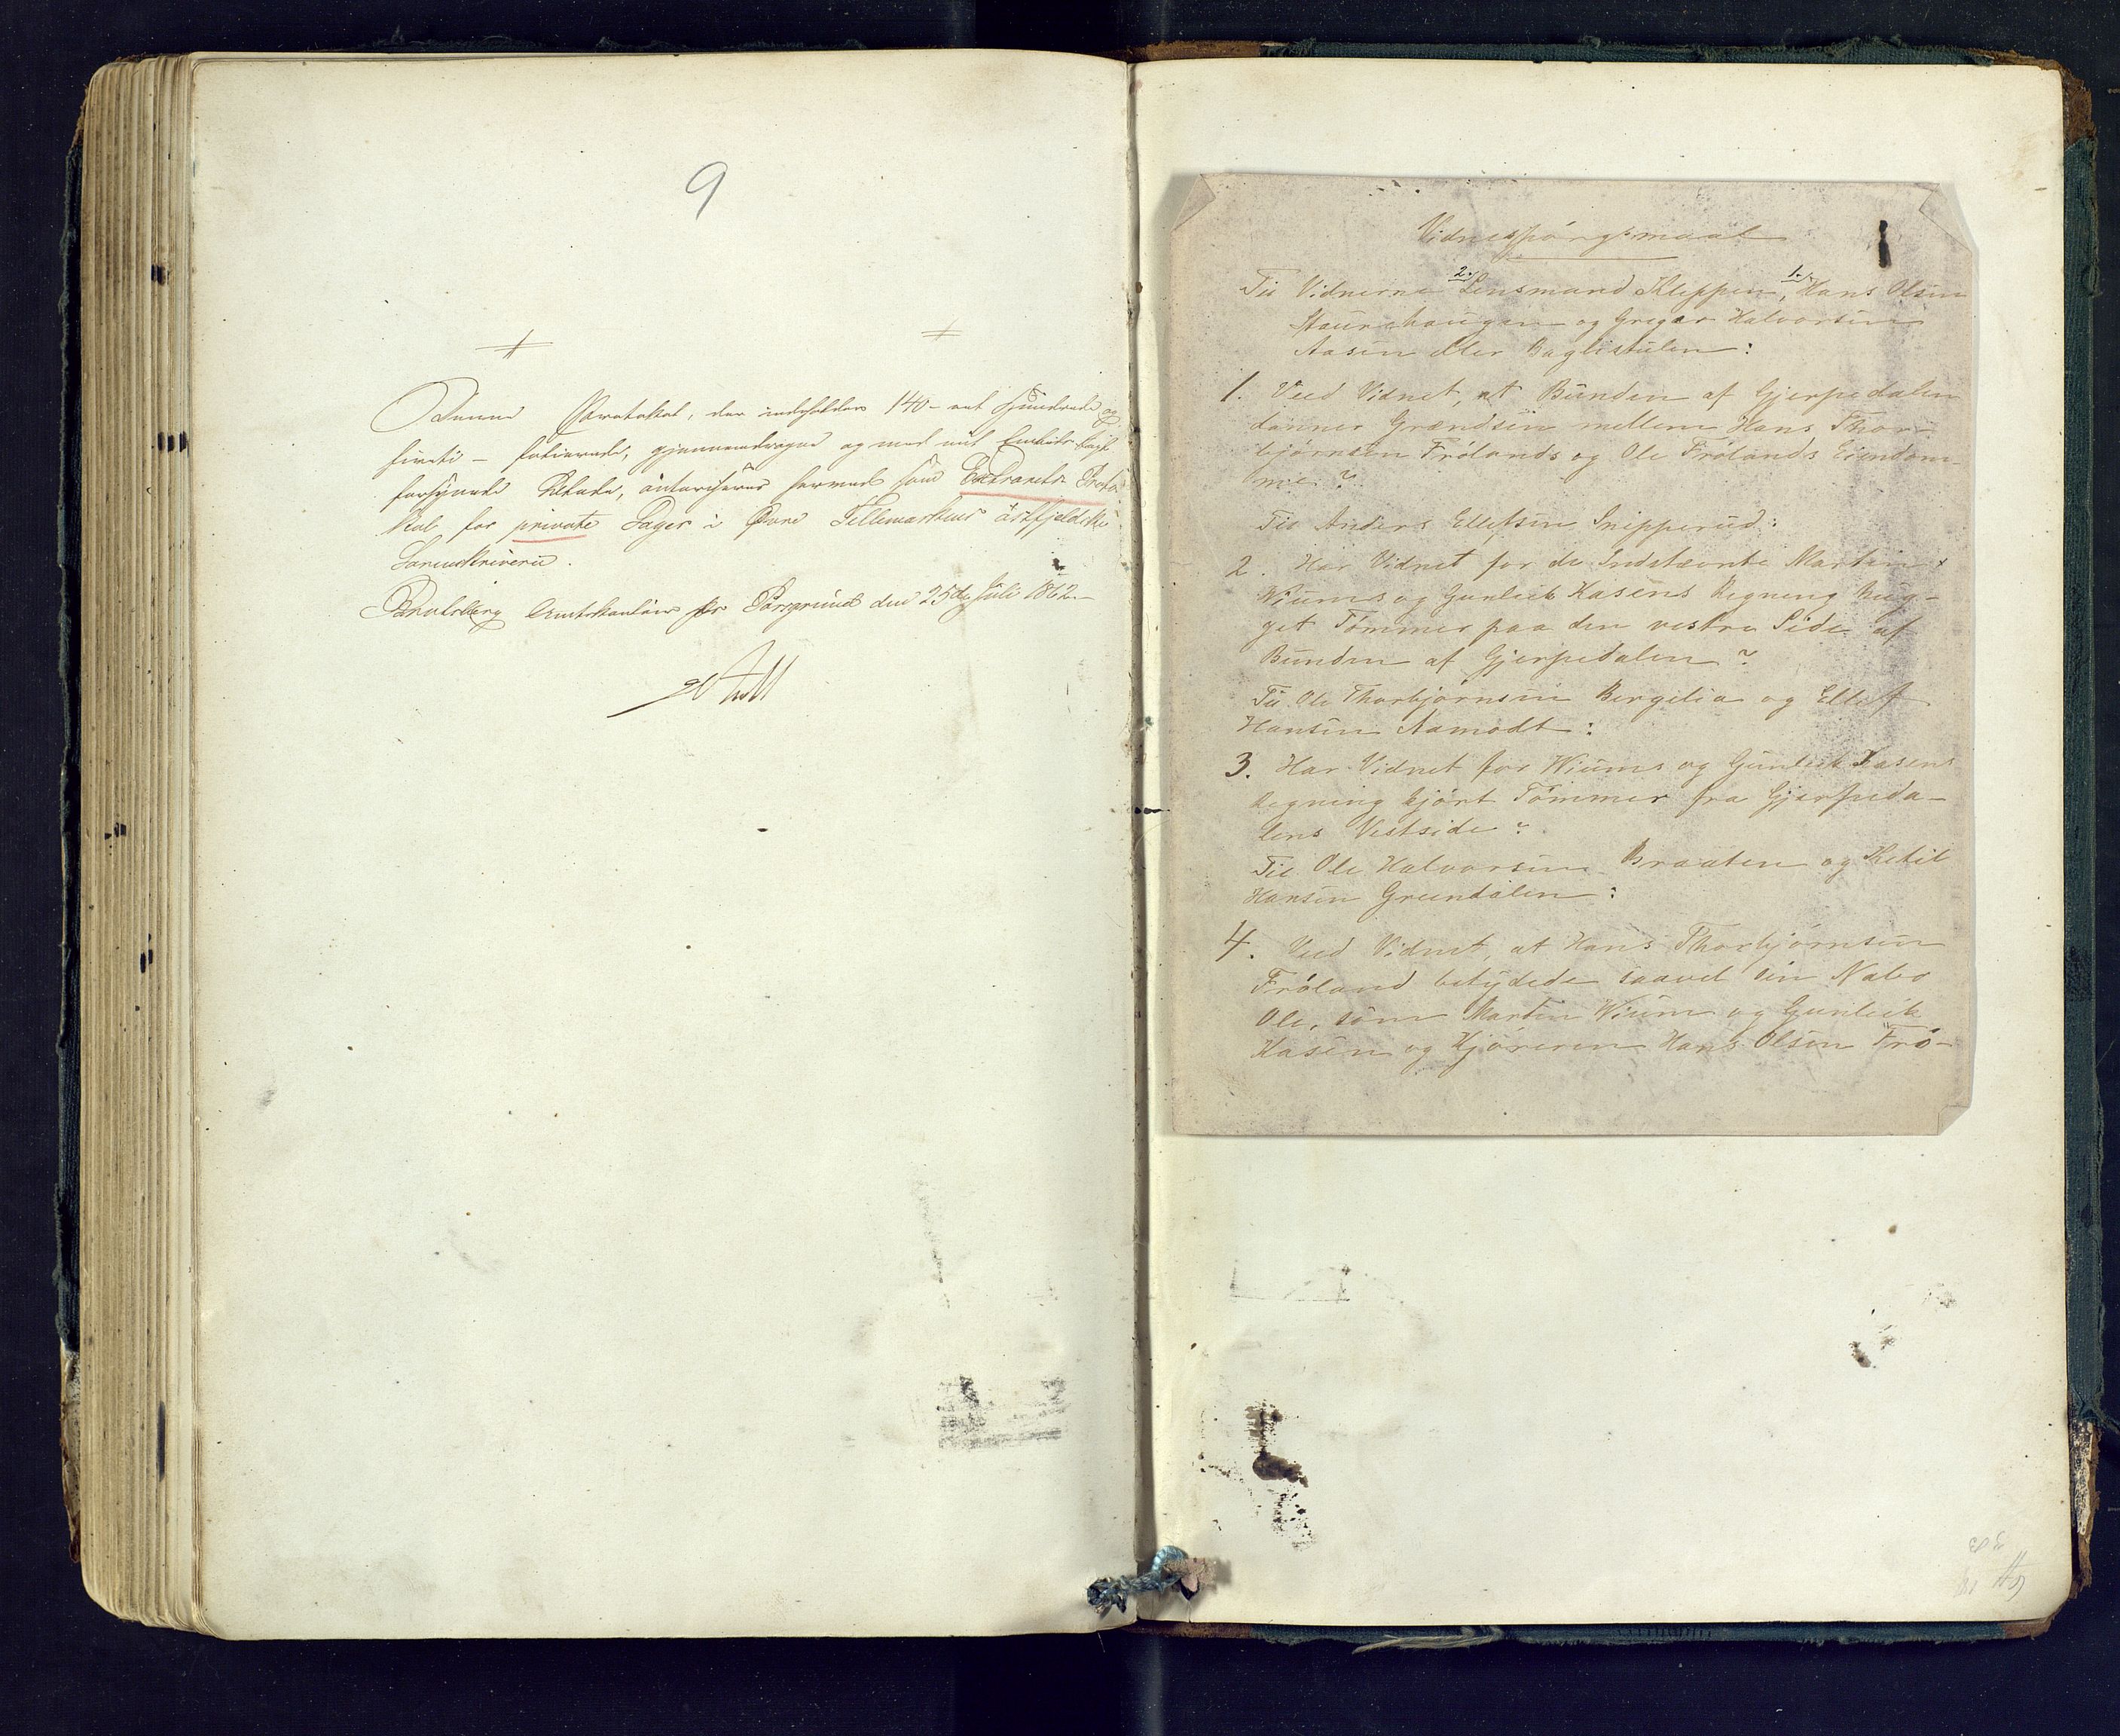 9
Denne Protokol, der indeholder 140 - et Hundrede og
fireti - folierede, gjennemdragne og med mit Embeds Segl
forsynede Blade, autoriseres herved som Extrarets Proto-
kol for private Sager i Øvre Tellemarkens østfjeldske
Sorenskriveri.
Bratsberg Amtskontoir pr Porsgrund den 25de Juli 1862.
Vidnespørgsmaal
Til Vidnerne 2. Lensmand Kleppen, 1. Hans Olsen
Staurehaugen og Gregar Halvorsen
Aasen eller Baglistulen:
1. Veed Vidnet, at Bunden af Gjerpedalen
danner Grændsen mellem Hans Thor-
bjørnsen Frølands og Ole Frølands Eiendom-
me?
Til Anders Ellefsen Snipperud:
2. Har Vidnet for de Indstevnte Martin
Wiums og Gunleik Kasens Regning hug-
get Tømmer paa den vestre Side af
Bunden af Gjerpedalen?
Til Ole Thorbjørnsen Bergelia og Ellef
Hansen Aamodt:
3. Har Vidnet for Wiums og Gunleik Kasens
Regning kjørt Tømmer fra Gjerpeda-
lens Vestside?
Til Ole Halvorsen Braaten og Ketil
Hansen Grundalen:
4. Veed Vidnet, at Hans Thorbjørnsen
Frøland betydede saavel sin Nabo
Ole, som Martin Wium og Gunleik
Kasen og Kjøreren Hans Olsen Frø-